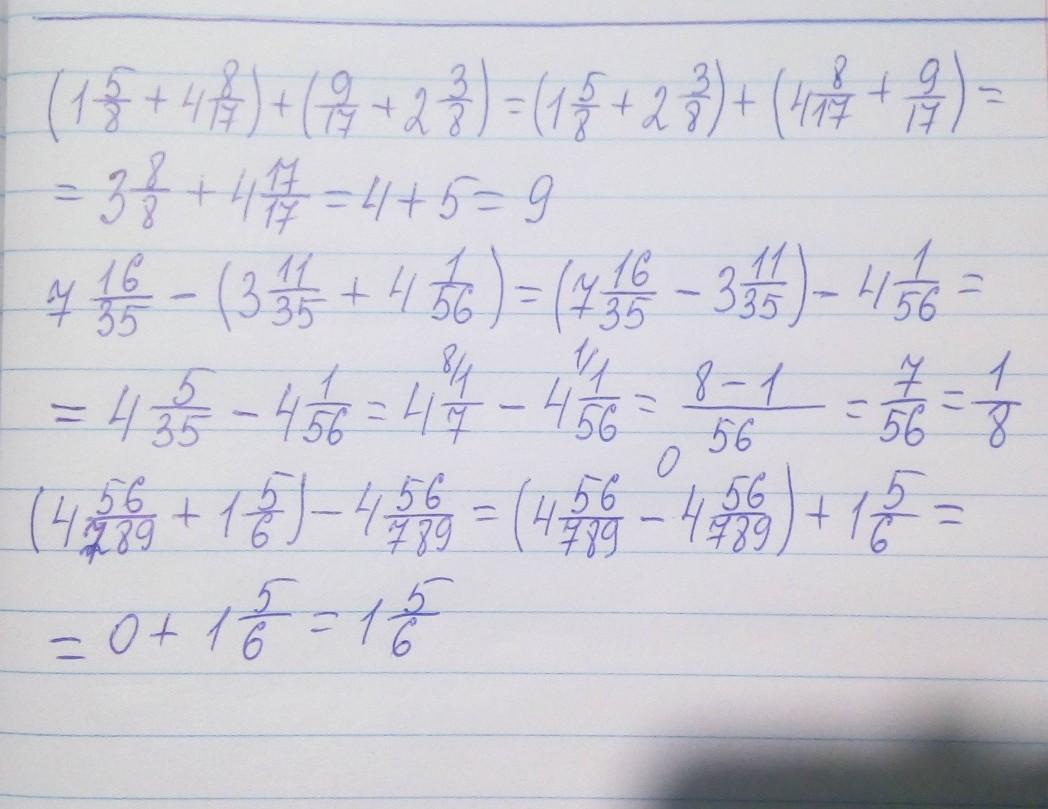 (1 5/8 + 4 8/17) + (9/17 + 2 3/8) = (1 5/8 + 2 3/8) + (4 8/17 + 9/17) =
= 3 8/8 + 4 17/17 = 4 + 5 = 9
7 16/35 − (3 11/35 + 4 1/56) = (7 16/35 − 3 11/35) − 4 1/56 =
= 4 5/35 − 4 1/56 = 4 ⁸⁄1/7 − 4 ¹⁄1/56 = (8 − 1)/56 = 7/56 = 1/8
0
(4 56/789 + 1 5/6) − 4 56/789 = (4 56/789 − 4 56/789) + 1 5/6 =
= 0 + 1 5/6 = 1 5/6